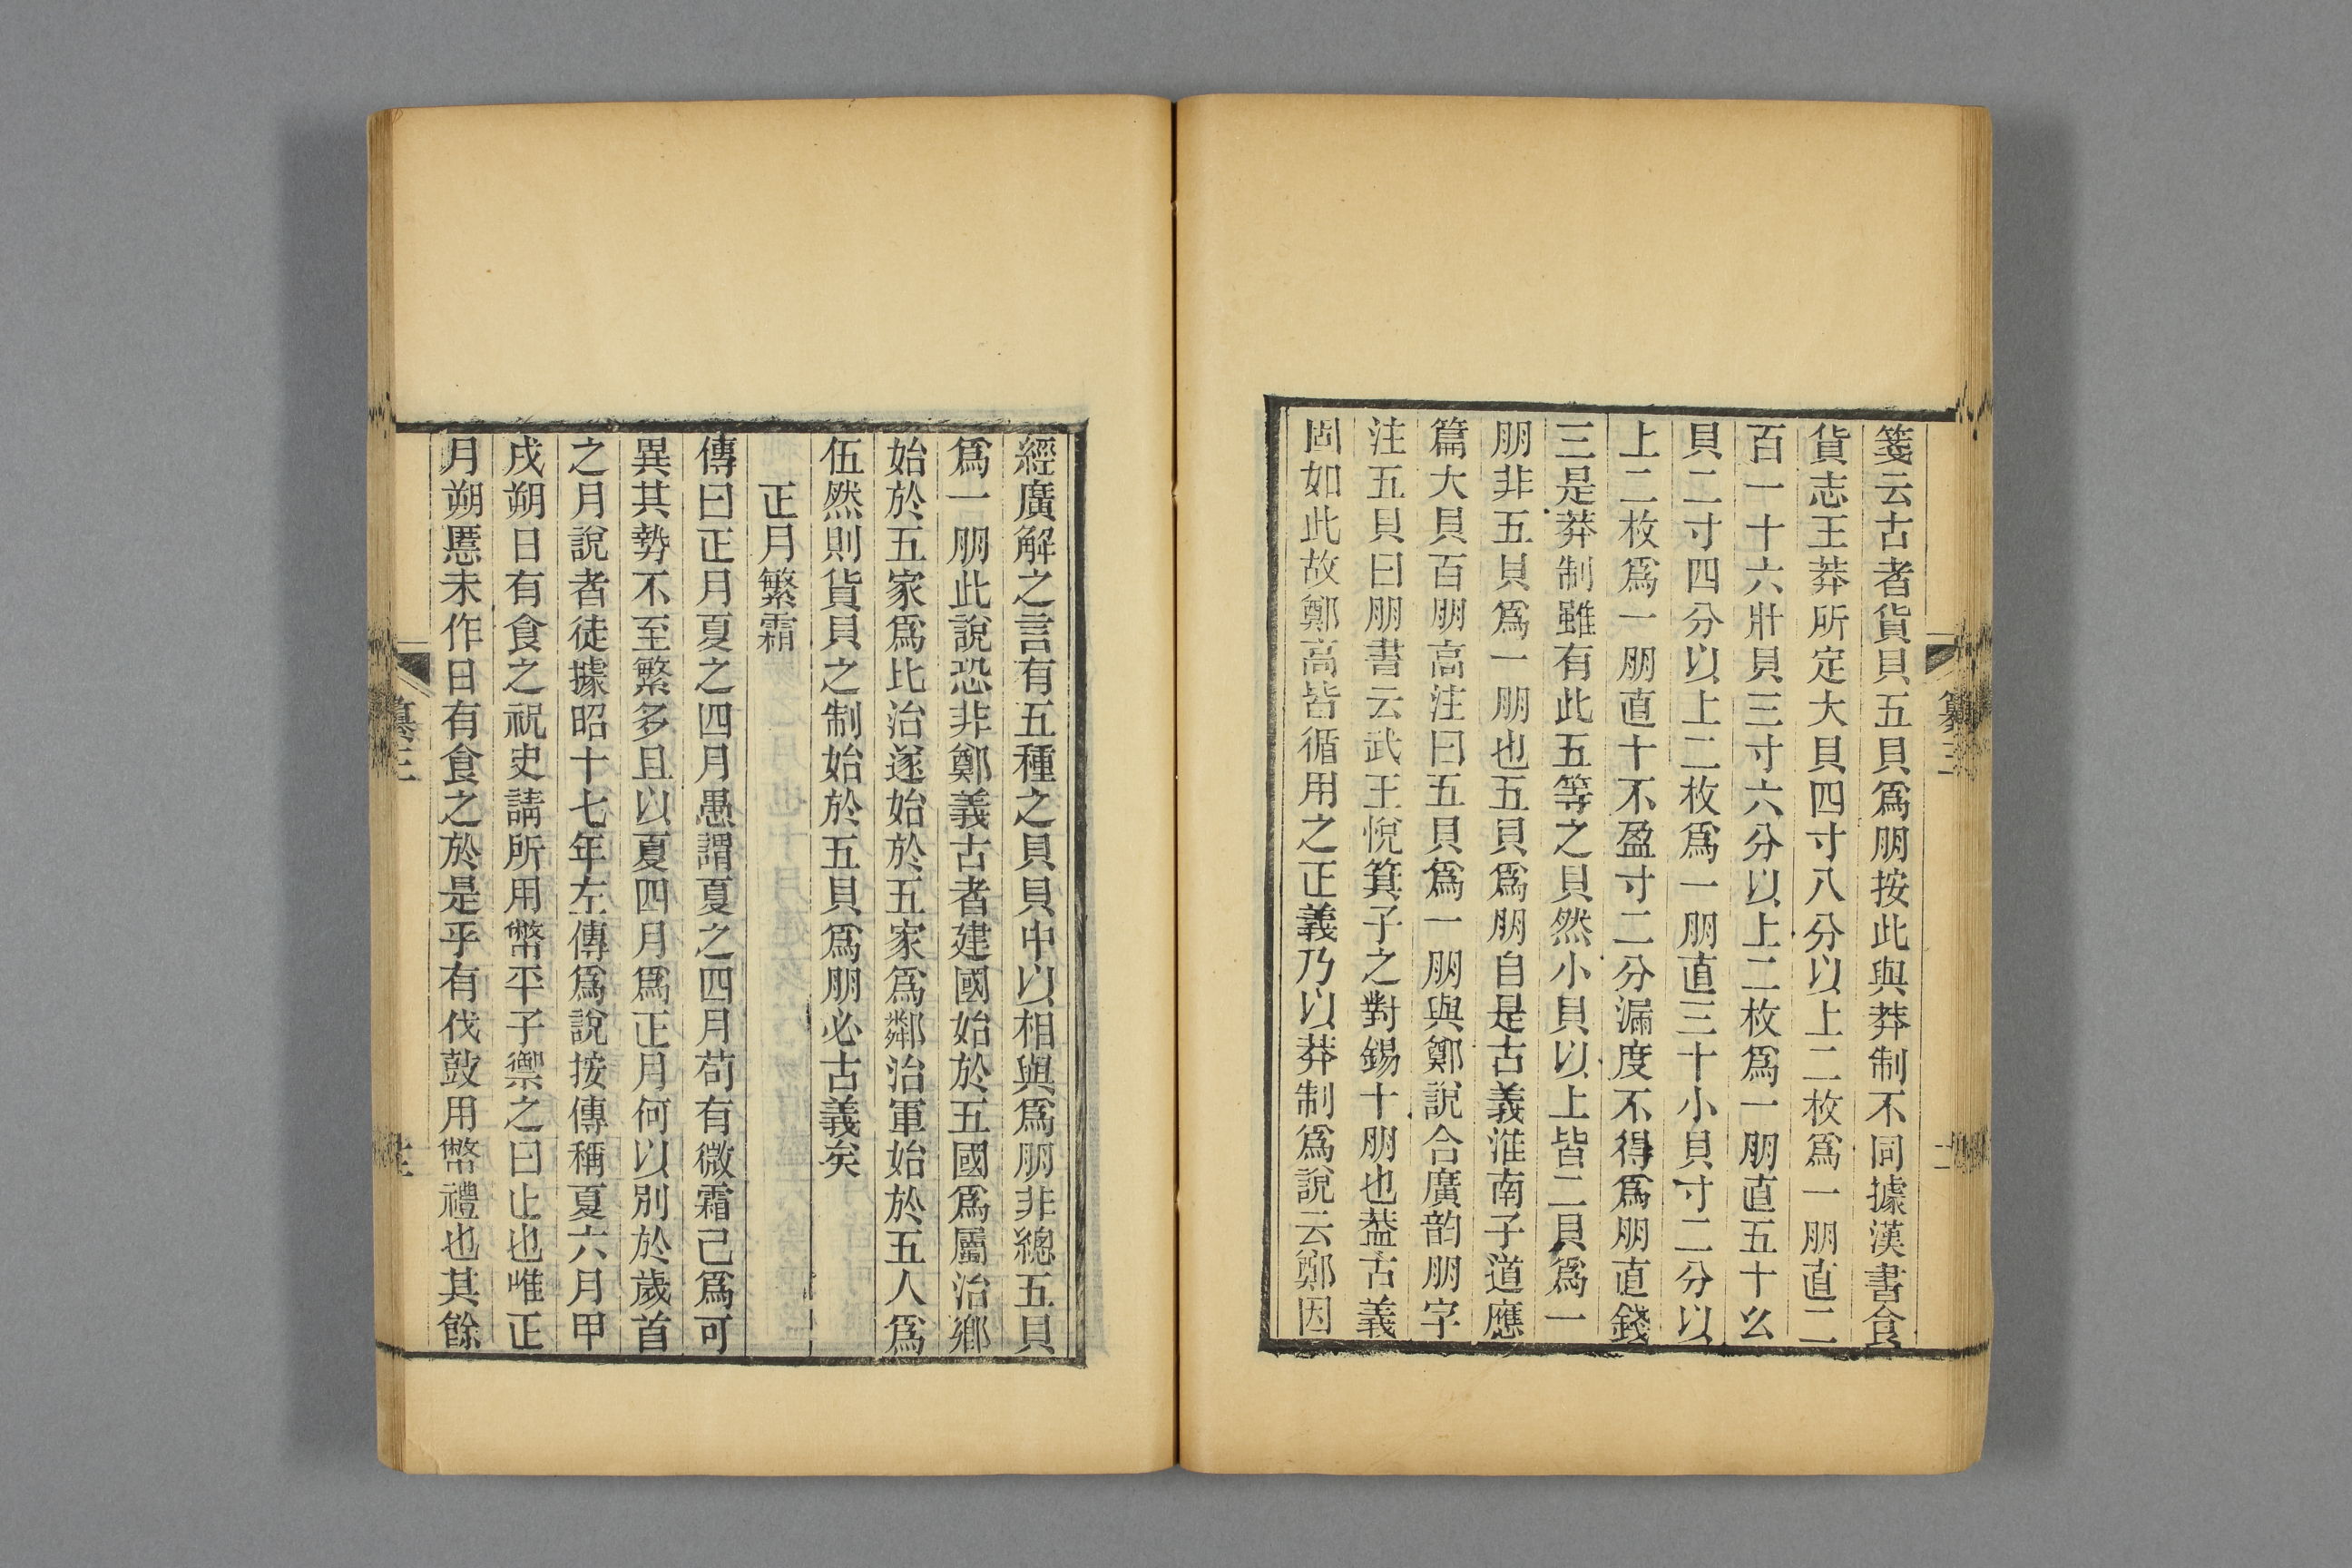 箋云古者貨貝五貝爲朋按此與莽制不同據漢書食
貨志王莽所定大貝四寸八分以上二枚爲一朋直二
百一十六壯貝三寸六分以上二枚爲一朋直五十幺
貝二寸四分以上二枚爲一朋直三十小貝寸二分以
上二枚爲一朋直十不盈寸二分漏度不得爲朋直錢
三是莽制雖有此五等之貝然小貝以上皆二貝爲一
朋非五貝爲一朋也五貝爲朋自是古義淮南子道應
篇大貝百朋高注曰五貝爲一朋與鄭說合廣韵朋字
注五貝曰朋書云武王悅箕子之對錫十朋也葢古義
固如此故鄭高皆循用之正義乃以莽制爲說云鄭因
經廣解之言有五種之貝貝中以相與爲朋非總五貝
爲一朋此說恐非鄭義古者建國始於五國爲屬治鄉
始於五家爲比治遂始於五家爲鄰治軍始於五人爲
伍然則貨貝之制始於五貝爲朋必古義矣
正月繁霜
傳曰正月夏之四月愚謂夏之四月苟有微霜已爲可
異其勢不至繁多且以夏四月爲正月何以別於歲首
之月說者徒據昭十七年左傳爲說按傳稱夏六月甲
戌朔日有食之祝史請所用幣平子禦之曰止也唯正
月朔慝未作日有食之於是乎有伐鼓用幣禮也其餘
纂三